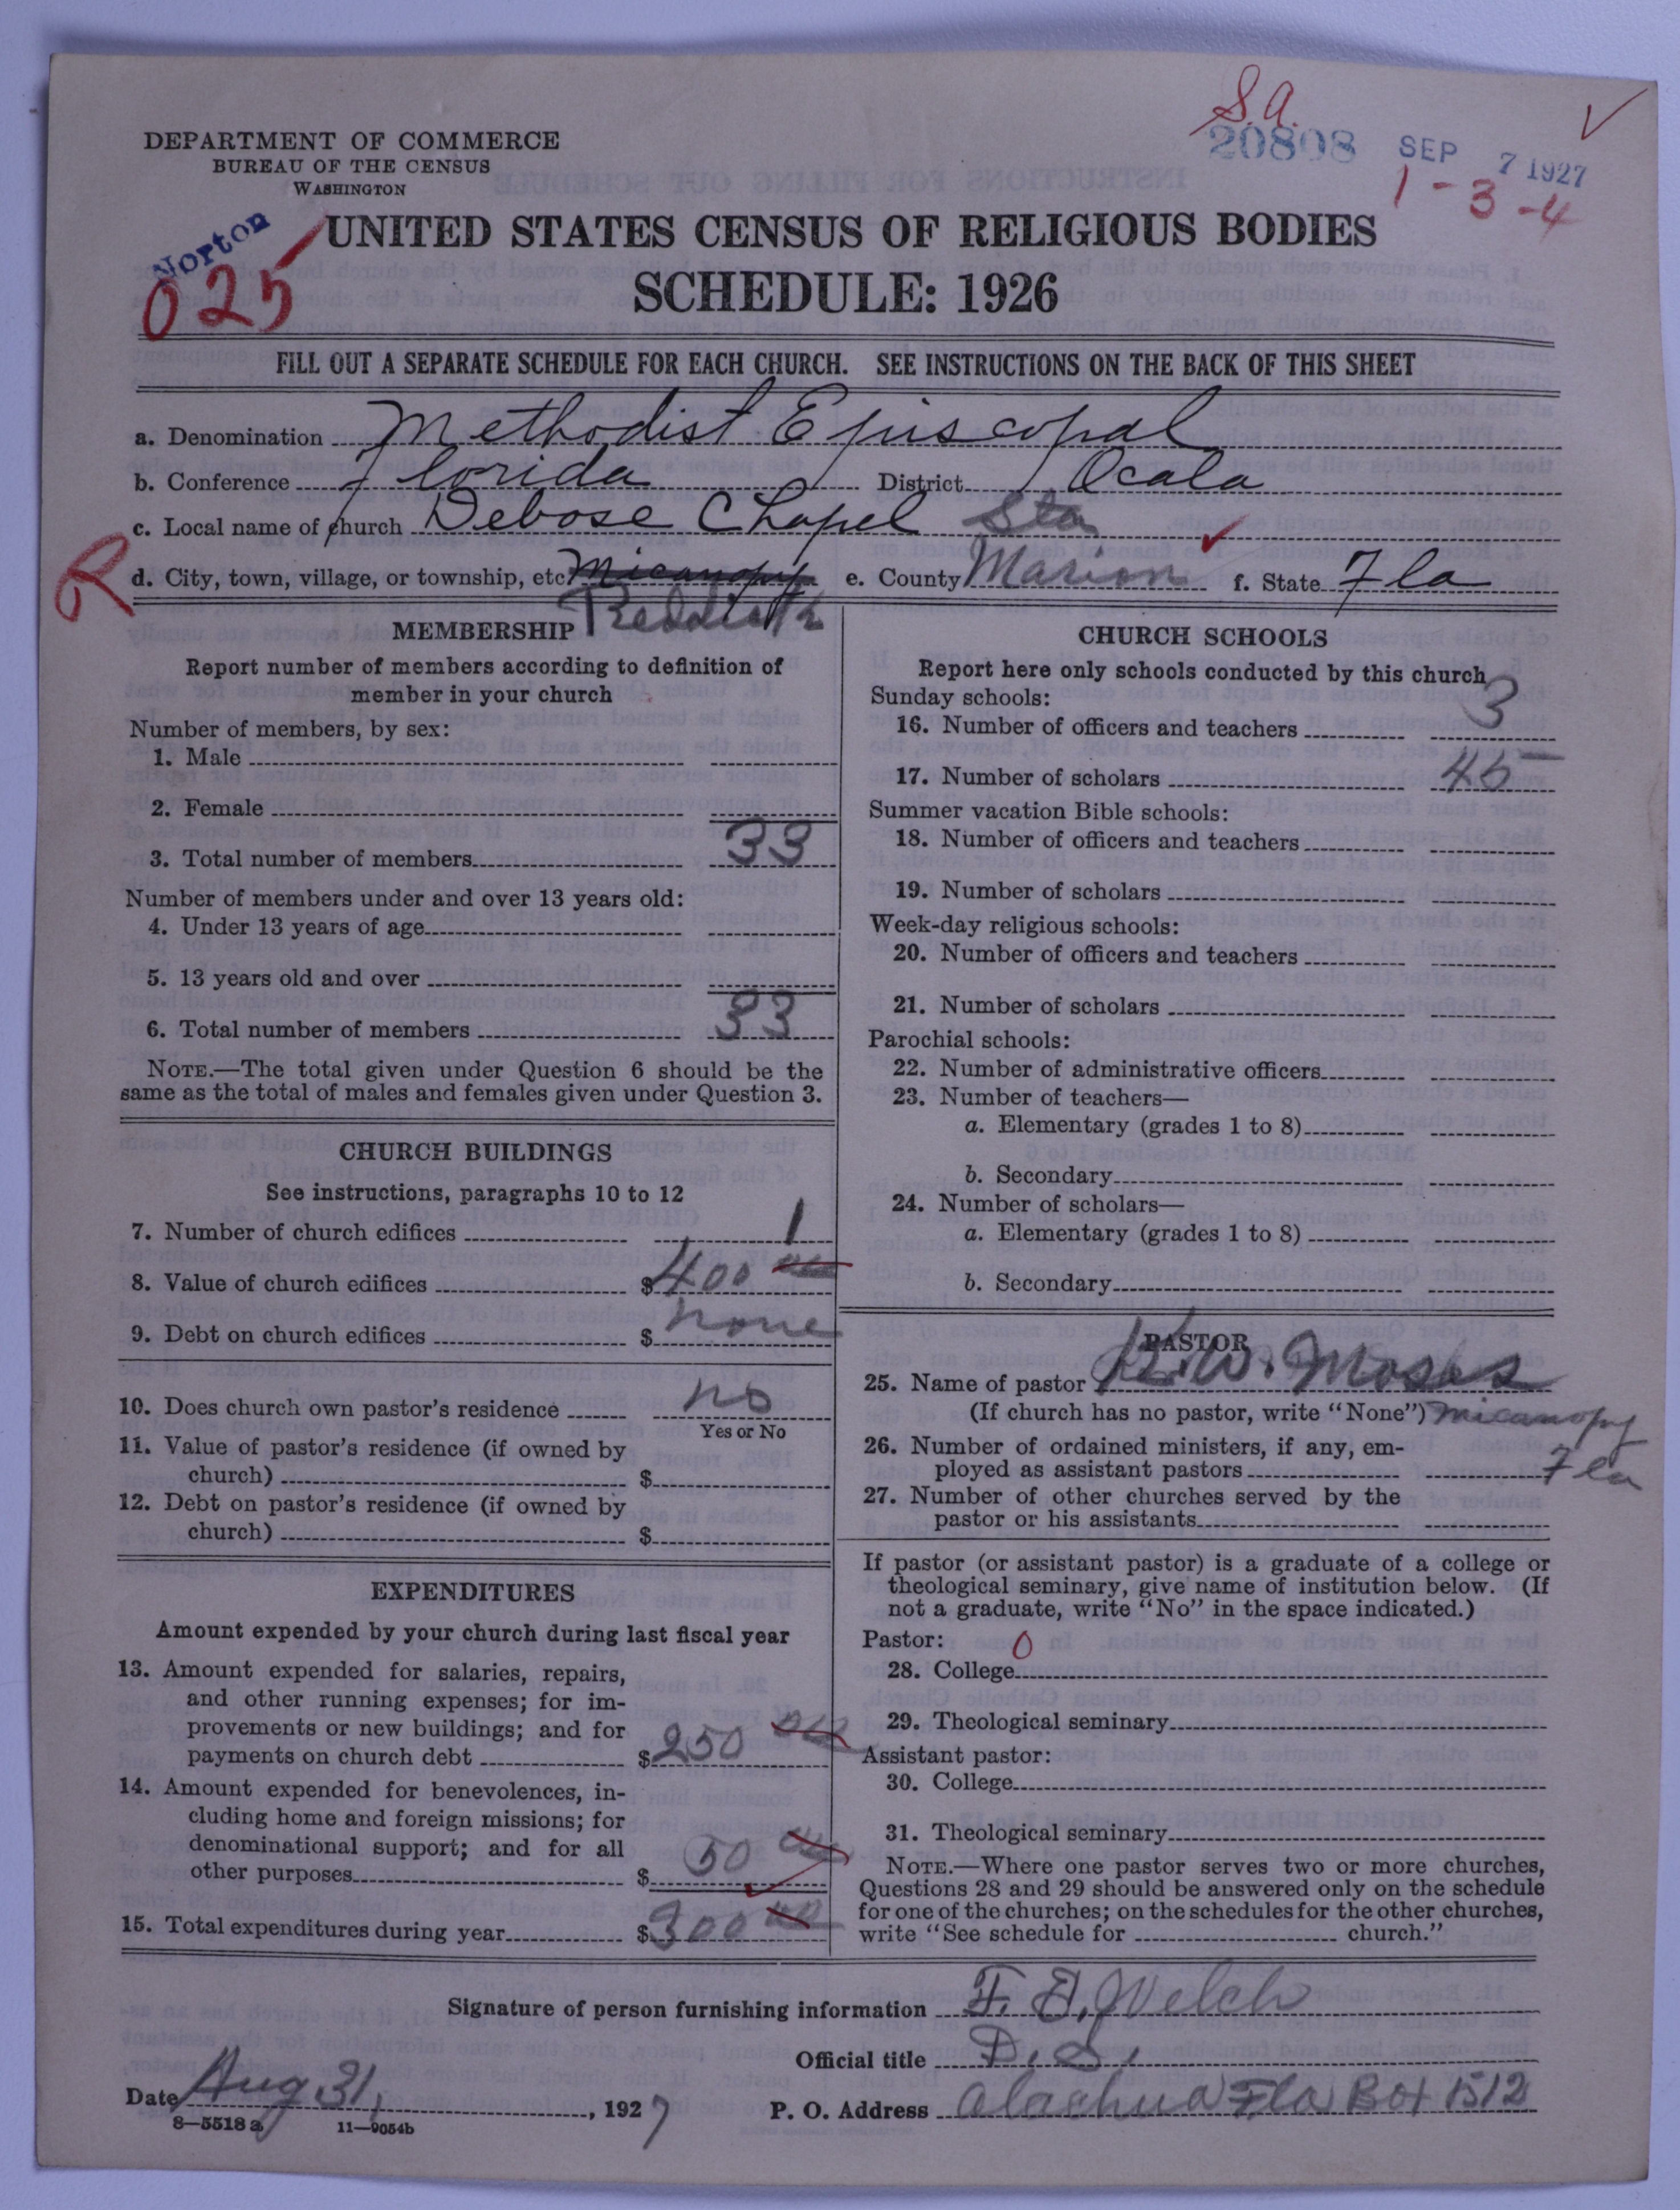 S.A.
20808 SEP 7 1927
1-3-4
DEPARTMENT OF COMMERCE
BUREAU OF THE CENSUS
WASHINGTON
Norton
025
UNITED STATES CENSUS OF RELIGIOUS BODIES
SCHEDULE: 1926
FILL OUT A SEPARATE SCHEDULE FOR EACH CHURCH. SEE INSTRUCTIONS ON THE BACK OF THIS SHEET
a. Denomination Methodist Episcopal
b. Conference Florida District Ocala
c. Local name of church Debose Chapel Sta
R
d. City, town, village, or township, etc. Micanopy e. County Marion f. State Fla
Reddick
MEMBERSHIP
Report number of members according to definition of
member in your church
Number of members, by sex:
1. Male
2. Female
3. Total number of members 33
Number of members under and over 13 years old:
4. Under 13 years of age
5. 13 years old and over
6. Total number of members 33
NOTE.—The total given under Question 6 should be the
same as the total of males and females given under Question 3.
CHURCH BUILDINGS
See instructions, paragraphs 10 to 12
7. Number of church edifices 1
8. Value of church edifices $400 00
9. Debt on church edifices $ none
10. Does church own pastor's residence no
Yes or No
11. Value of pastor's residence (if owned by
church) $
12. Debt on pastor's residence (if owned by
church) $
EXPENDITURES
Amount expended by your church during last fiscal year
13. Amount expended for salaries, repairs,
and other running expenses; for im-
provements or new buildings; and for
payments on church debt $250 00
14. Amount expended for benevolences, in-
cluding home and foreign missions; for
denominational support; and for all
other purposes $ 50 00
15. Total expenditures during year $300 00
CHURCH SCHOOLS
Report here only schools conducted by this church
Sunday schools:
16. Number of officers and teachers 3
17. Number of scholars 45
Summer vacation Bible schools:
18. Number of officers and teachers
19. Number of scholars
Week-day religious schools:
20. Number of officers and teachers
21. Number of scholars
Parochial schools:
22. Number of administrative officers
23. Number of teachers—
a. Elementary (grades 1 to 8)
b. Secondary
24. Number of scholars—
a. Elementary (grades 1 to 8)
b. Secondary
PASTOR
25. Name of pastor W. Moses
(If church has no pastor, write "None") Micanopy
26. Number of ordained ministers, if any, em-
ployed as assistant pastors Fla
27. Number of other churches served by the
pastor or his assistants
If pastor (or assistant pastor) is a graduate of a college or
theological seminary, give name of institution below. (If
not a graduate, write "No" in the space indicated.)
Pastor: 0
28. College
29. Theological seminary
Assistant pastor:
30. College
31. Theological seminary
NOTE.—Where one pastor serves two or more churches,
Questions 28 and 29 should be answered only on the schedule
for one of the churches; on the schedules for the other churches,
write "See schedule for church."
Signature of person furnishing information F. D. Welch
Official title D. S.
Date Aug 31, 1927 P. O. Address Alachua Fla Box 1512
8—5518 a 11—9054b